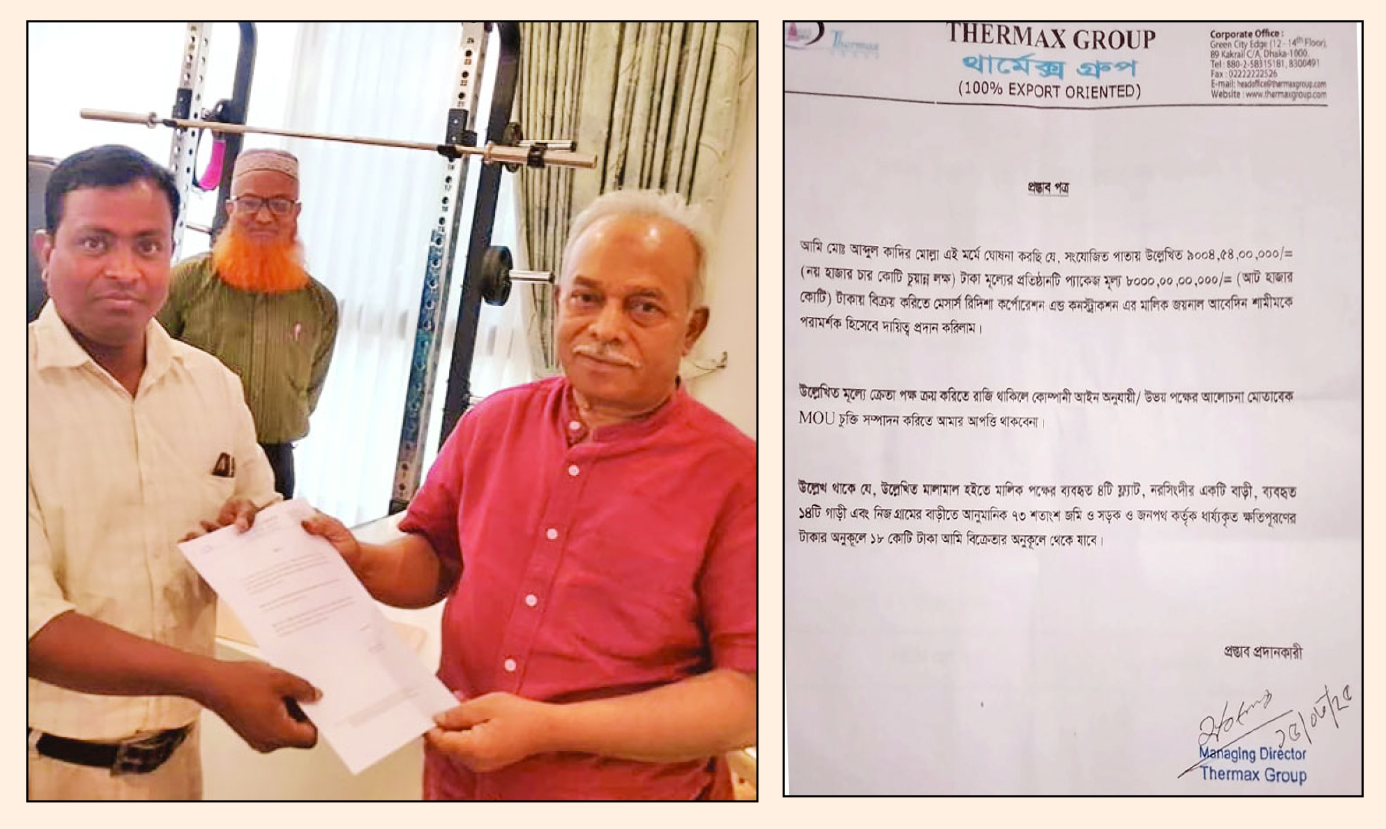 Thermax
THERMAX GROUP
থার্মেক্স গ্রুপ
(100% EXPORT ORIENTED)
Corporate Office :
Green City Edge (12 - 14th Floor),
89 Kakrail C/A, Dhaka-1000.
Tel : 880-2-58315181, 8300491
Fax : 02222222526
E-mail: headoffice@thermaxgroup.com
Website : www.thermaxgroup.com
প্রস্তাব পত্র
আমি মোঃ আব্দুল কাদির মোল্লা এই মর্মে ঘোষনা করছি যে, সংযোজিত পাতায় উল্লেখিত ৯০০৪,৫৪,০০,০০০/=
(নয় হাজার চার কোটি চুয়ান্ন লক্ষ) টাকা মূল্যের প্রতিষ্ঠানটি প্যাকেজ মূল্য ৮০০০,০০,০০,০০০/= (আট হাজার
কোটি) টাকায় বিক্রয় করিতে মেসার্স রিদিশা কর্পোরেশন এন্ড কনস্ট্রাকশন এর মালিক জয়নাল আবেদিন শামীমকে
পরামর্শক হিসেবে দায়িত্ব প্রদান করিলাম।
উল্লেখিত মূল্যে ক্রেতা পক্ষ ক্রয় করিতে রাজি থাকিলে কোম্পানী আইন অনুযায়ী/ উভয় পক্ষের আলোচনা মোতাবেক
MOU চুক্তি সম্পাদন করিতে আমার আপত্তি থাকবেনা।
উল্লেখ থাকে যে, উল্লেখিত মালামাল হইতে মালিক পক্ষের ব্যবহৃত ৪টি ফ্ল্যাট, নরসিংদীর একটি বাড়ী, ব্যবহৃত
১৪টি গাড়ী এবং নিজ গ্রামের বাড়ীতে আনুমানিক ৭৩ শতাংশ জমি ও সড়ক ও জনপথ কর্তৃক ধার্য্যকৃত ক্ষতিপূরণের
টাকার অনুকূলে ১৮ কোটি টাকা আমি বিক্রেতার অনুকূলে থেকে যাবে।
প্রস্তাব প্রদানকারী
Managing Director
Thermax Group